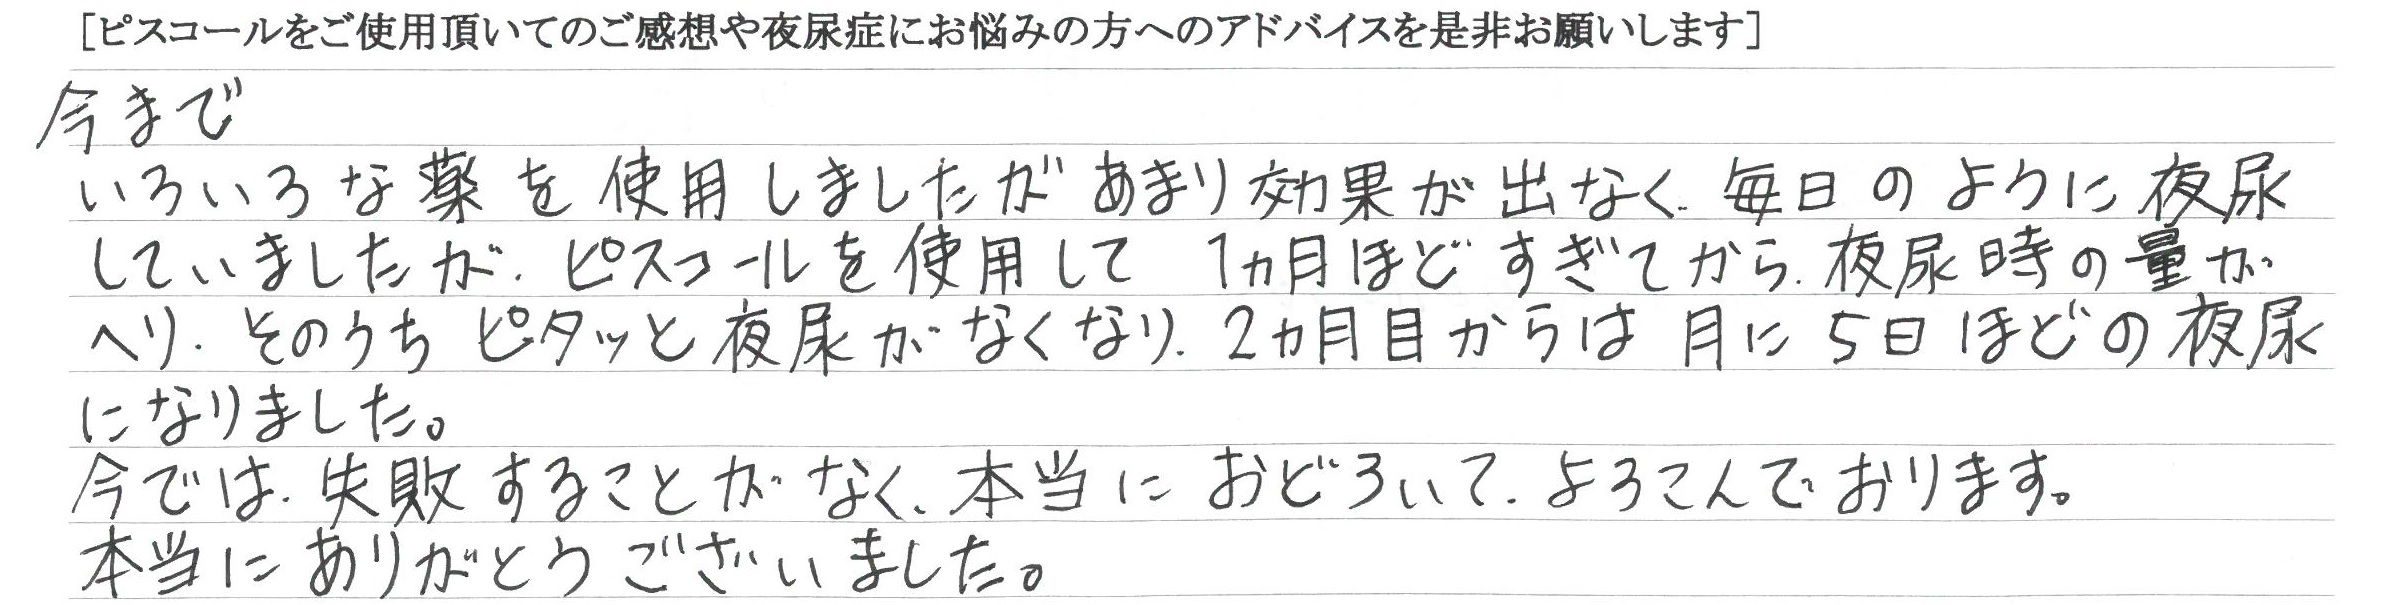 [ピスコールをご使用頂いてのご感想や夜尿症にお悩みの方へのアドバイスを是非お願いします]
今まで
いろいろな薬を使用しましたがあまり効果が出なく、毎日のように夜尿
していましたが、ピスコールを使用して 1ヵ月ほどすぎてから、夜尿時の量が
へり、そのうちピタッと夜尿がなくなり、2ヵ月目からは月に5日ほどの夜尿
になりました。
今では、失敗することがなく、本当におどろいて、よろこんでおります。
本当にありがとうございました。